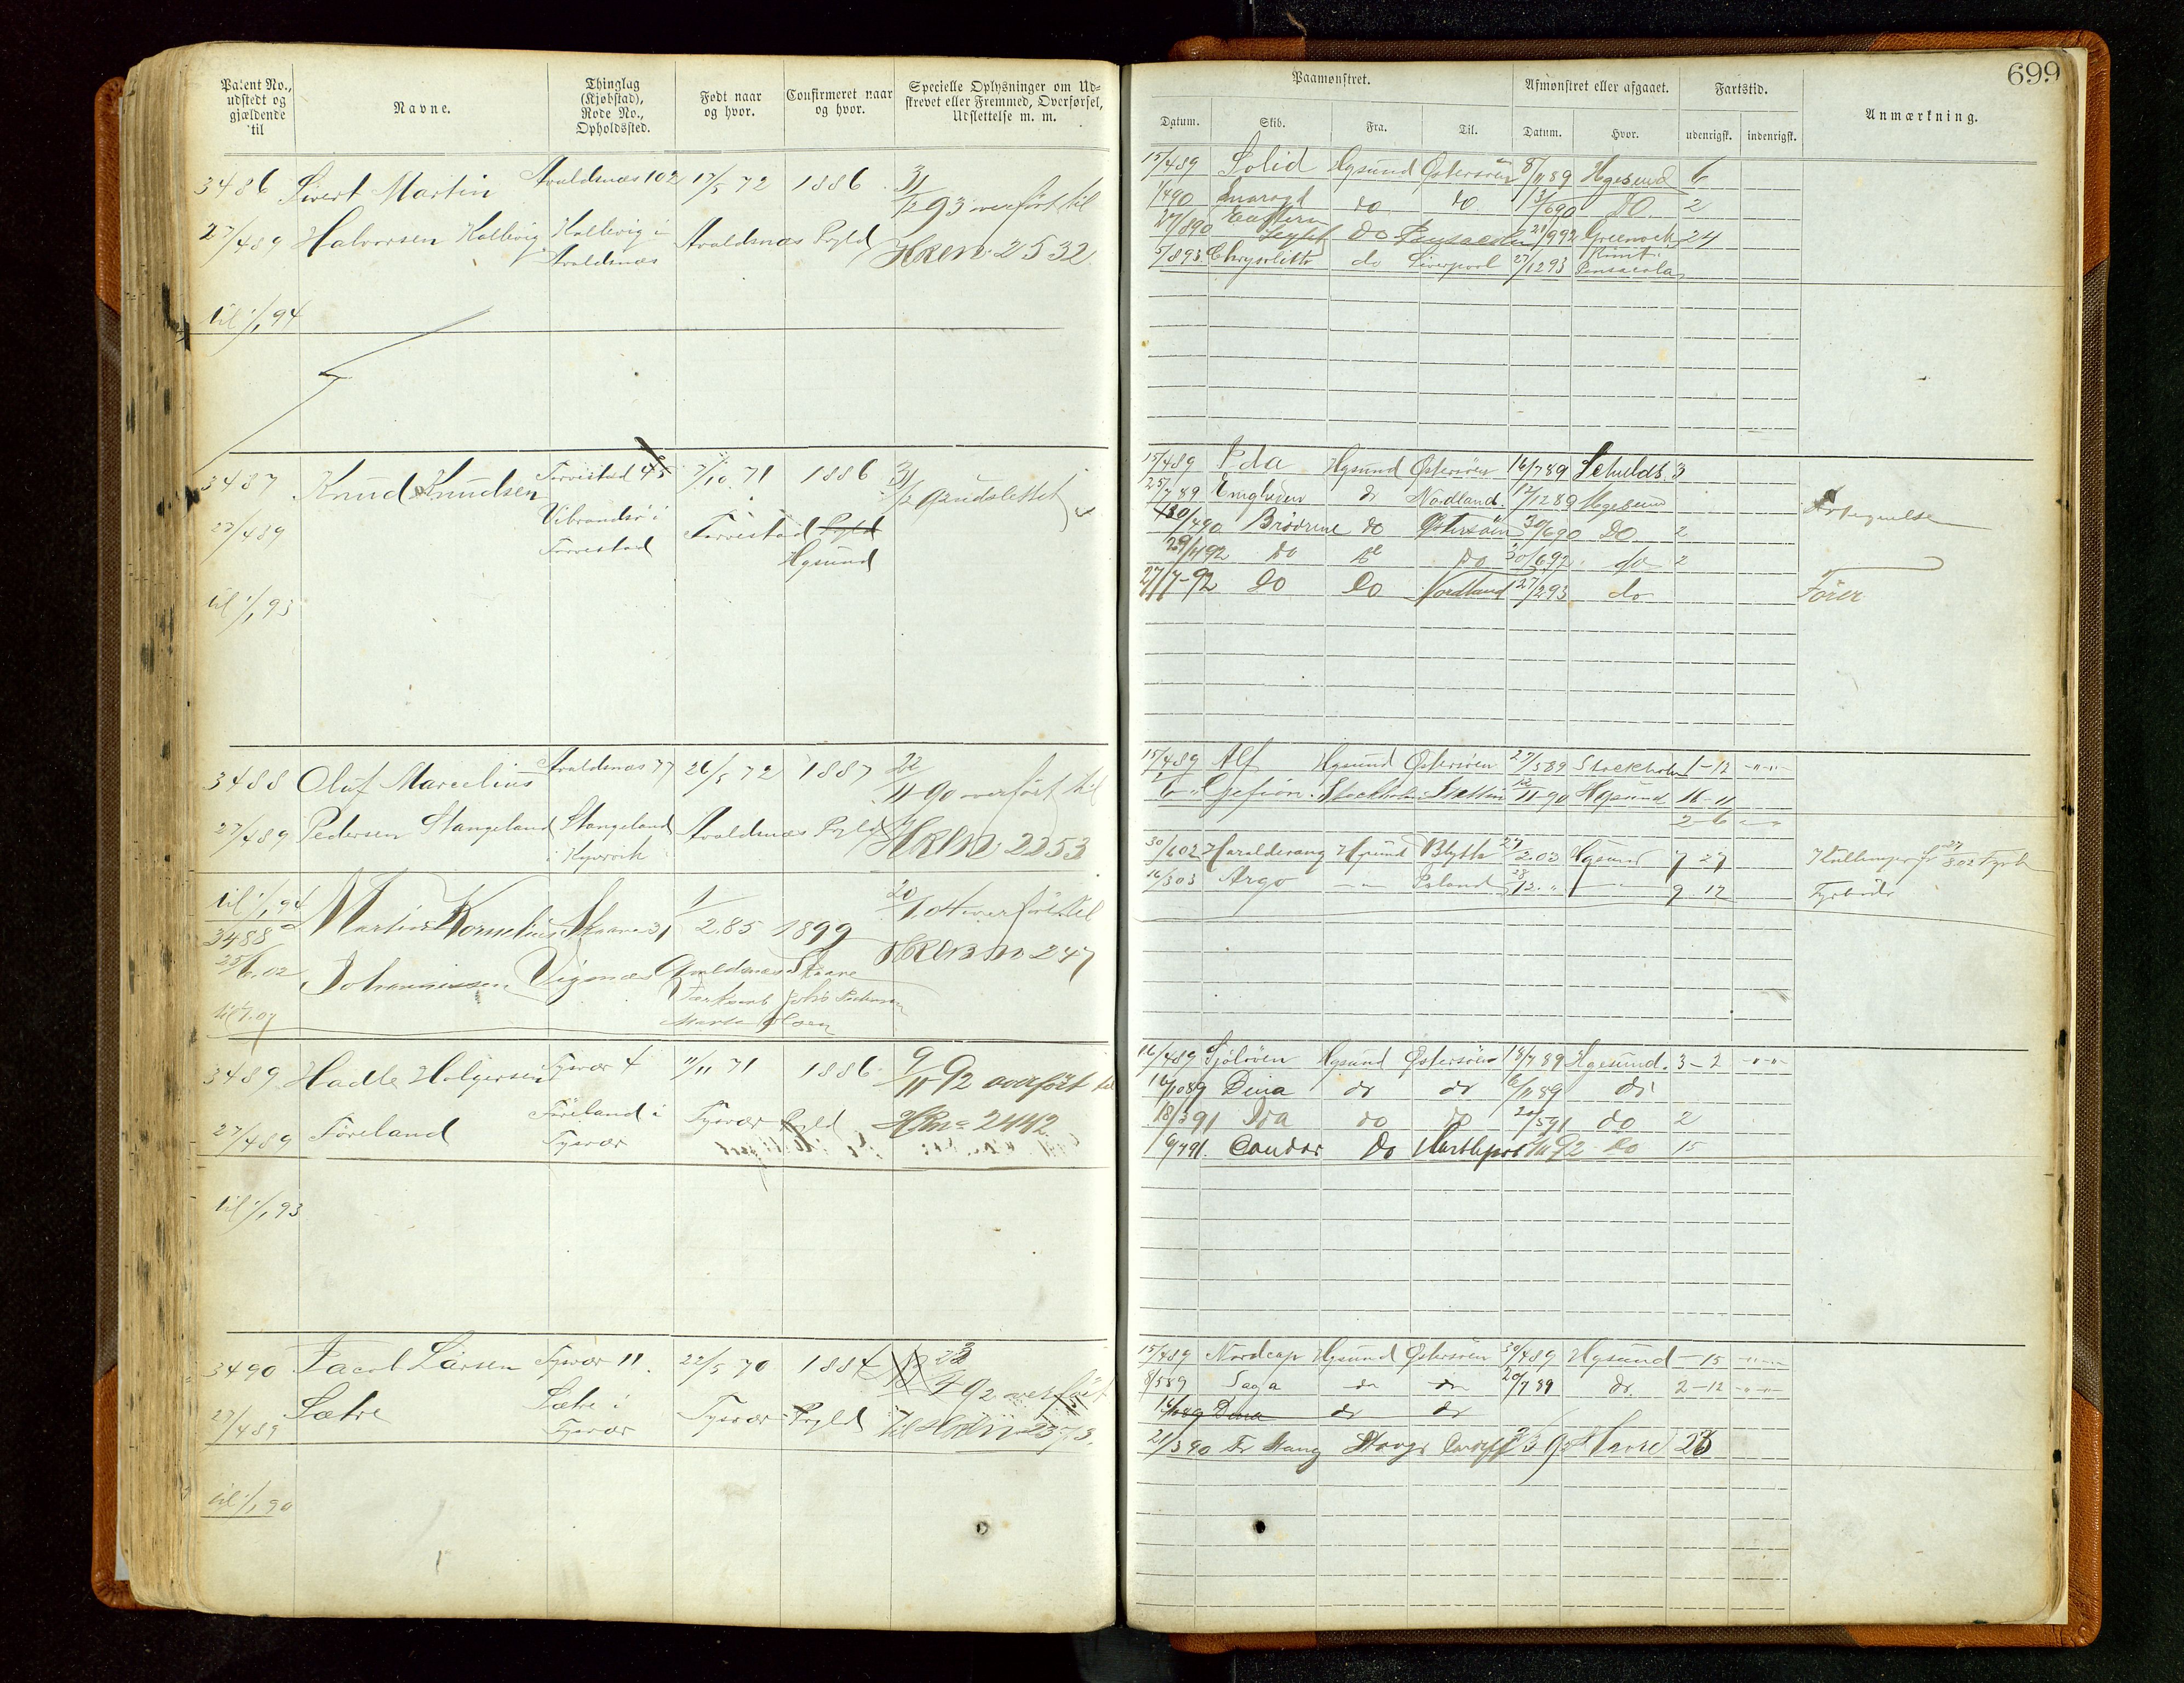 Patent No., udstedt og gjældende til
Navne.
Thinglag (Kjøbstad), Rode No., Opholdssted.
Født naar og hvor.
Confirmeret naar og hvor.
Specielle Oplysninger om Udskrevet eller Fremmed, Overførsel, Udslettelse m. m.
3486 Sivert Martin Avaldsnæs 102 17/5 72 1886 31/12 93 overført til
27/4 89 Halvorsen Kallevig Kallevig i Avaldsnæs Avaldsnæs Pgld HRLN 2532
til 1/1 94
3487 Knud Knudsen Torvestad 45 7/10 71 1886 31/12 92 udslettet
27/4 89 Vibrandsö i Torvestad Torvestad Pgld Hgsund
til 1/1 93
3488 Oluf Marcelius Avaldsnæs 77 26/5 72 1887 22/11 90 overført til
27/4 89 Pedersen Stangeland Stangeland i Avaldsnæs Pgld HRLN 2253
til 1/1 94
3488 a Martin Kornelius Skaare 31 1/2.85 1899 20/1.04 overført til
25/6.02 Johannissen Vigsnæs Avaldsnæs Skaare 247
til 1/1.07
3489 Hadle Holgersen Tysvær 4 11/11 71 1886 9/11 92 overført til
27/4 89 Föreland Föreland i Tysvær Tysvær Pgld 2442
til 1/1 93
3490 Jacob Larsen Tysvær 11. 22/5 70 1884 23/4 92 overført
27/4 89 Sætre Sætre i Tysvær Tysvær Pgld til 2373.
til 1/1 90
699
Paamønstret.
Afmønstret eller afgaaet.
Fartstid.
Anmærkning.
Datum. Skib. Fra. Til. Datum. Hvor. udenrigsk. indenrigsk.
15/4 89 Solid Hgsund Østersöen 8/11 89 Hgesund 6
1/4 90 Smaragd do do 13/6 90 Do. 2
27/8 90 Eastern Light do Pensacola 21/9 92 Greenock 24
5/8 93 Chrysolitte do Liverpool 27/12 93 Rømt Pensacola
15/4 89 Ida Hgsund Østersöen 16/7 89 Schulds. 3
25/7 89 Enigheden dr Nordland 12/12 89 Hgesund
30/4 90 Brödrene do Østersöen 30/6 90 Do 2
29/4 92 Do Do Do 30/6 92 do 2
27/7-92 Do Do Nordland 27/2 93 do Förer
15/4 89 Alf Hgsund Østersöen 27/5 89 Stockholm 1-12 -"-"-
6 " Gefion Stockholm Stettin 12/11-90 Hgsund 16-11
2-6
30/6 02 Haraldsvang Hgsund Blyth 27/2.03 Hgsund 7 27
16/3 03 Argo -"- Island 28/12." -"- 9 12 Fyrböder
16/4 89 Sjölöven Hgsund Østersöen 18/7 89 Hgesund. 3-2 -"-"-
16/10 89 Dina dr dr 6/11 89 dr
18/3 91 Ida do do 20/5 91 do 2
9/7 91. Condor Do Hartlepool 9/11 92 Do 15
15/4 89 Nordcap Hgsund Østersöen 30/4 89 Hgsund -15 -"-"-
8/5 89 Saga dr dr 20/7 89 dr. 2-12 -"-"-
16/10 89 Dina dr dr
21/3 90 Fr Stang Cardiff Havre